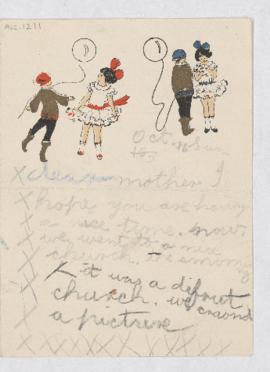 Acc. 1211
Oct
dear mother I
hope you are having
a nice time. now
we went to a nice
church.
it was a difrent
church. we
a picture